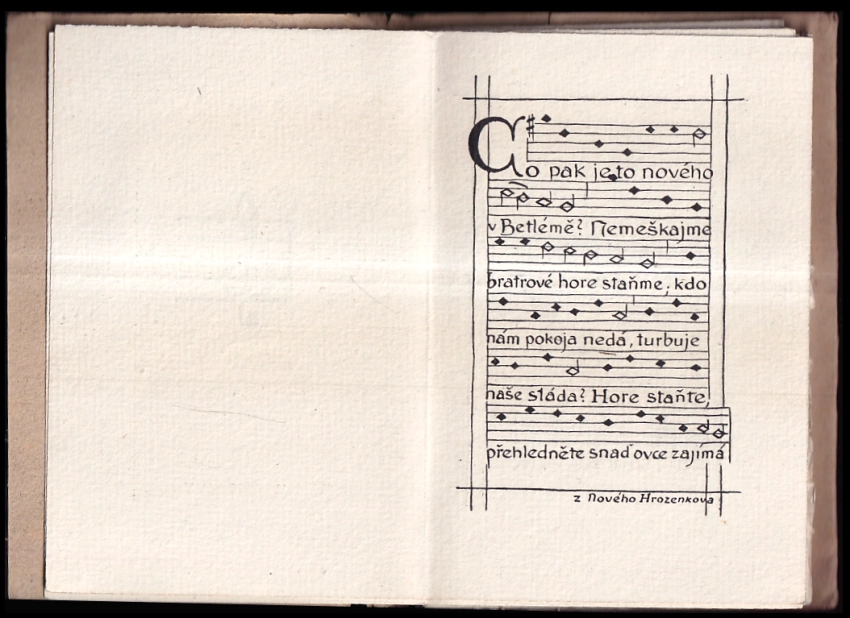 Co pak je to nového
v Betlémě? Nemeškajme
bratrové hore staňme, kdo
nám pokoja nedá, turbuje
naše stáda? Hore staňte,
přehledněte snaď ovce zajímá
z Nového Hrozenkova